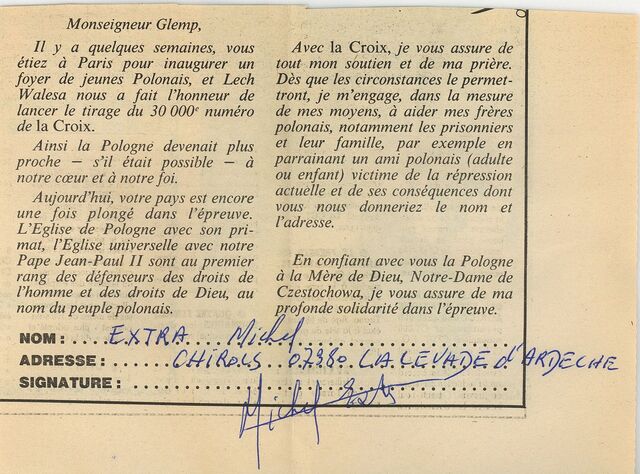 Monseigneur Glemp,
Il y a quelques semaines, vous
étiez à Paris pour inaugurer un
foyer de jeunes Polonais, et Lech
Walesa nous a fait l'honneur de
lancer le tirage du 30 000e numéro
de la Croix.
Ainsi la Pologne devenait plus
proche — s'il était possible — à
notre cœur et à notre foi.
Aujourd'hui, votre pays est encore
une fois plongé dans l'épreuve.
L'Eglise de Pologne avec son pri-
mat, l'Eglise universelle avec notre
Pape Jean-Paul II sont au premier
rang des défenseurs des droits de
l'homme et des droits de Dieu, au
nom du peuple polonais.
Avec la Croix, je vous assure de
tout mon soutien et de ma prière.
Dès que les circonstances le permet-
tront, je m'engage, dans la mesure
de mes moyens, à aider mes frères
polonais, notamment les prisonniers
et leur famille, par exemple en
parrainant un ami polonais (adulte
ou enfant) victime de la répression
actuelle et de ses conséquences dont
vous nous donneriez le nom et
l'adresse.
En confiant avec vous la Pologne
à la Mère de Dieu, Notre-Dame de
Czestochowa, je vous assure de ma
profonde solidarité dans l'épreuve.
NOM : EXTRA Michel
ADRESSE : CHIROLS 07380 LALEVADE d'ARDECHE
SIGNATURE : Michel Extra